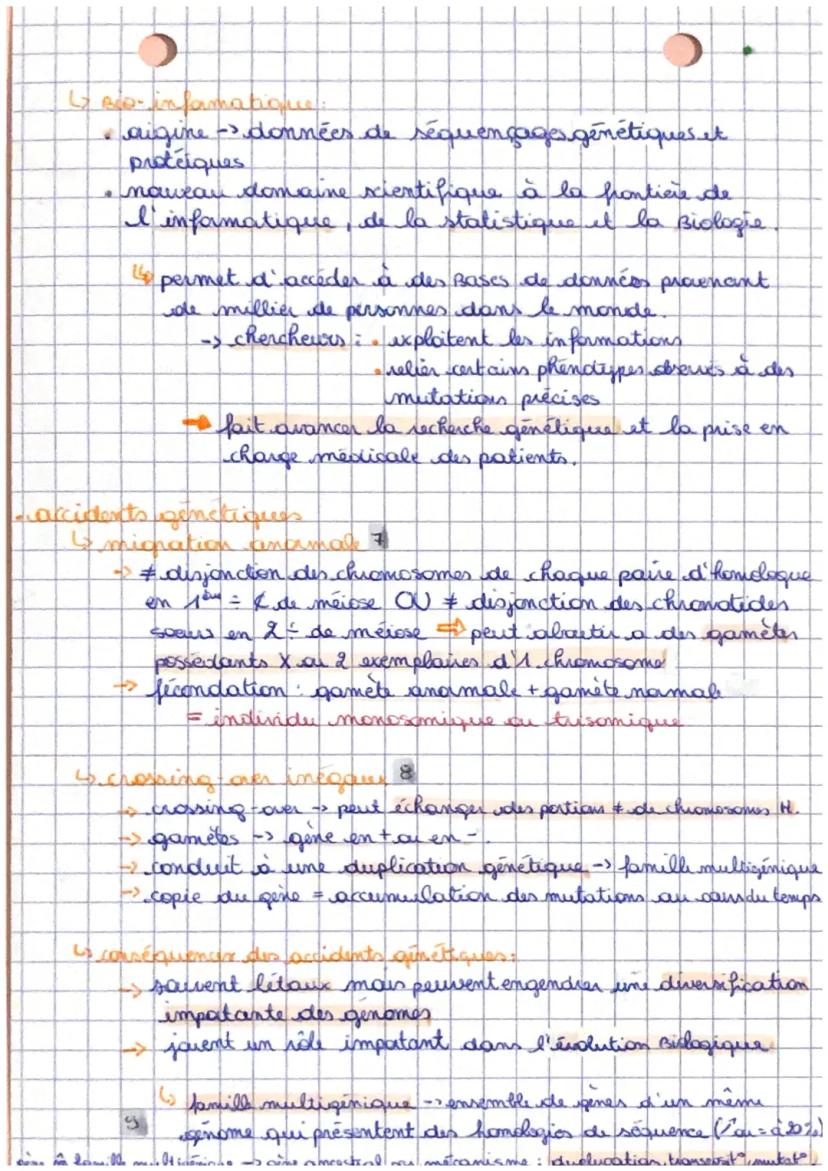 ↳ Bio-informatique :
• origine -> données de séquençages génétiques et
protéiques
• nouveau domaine scientifique à la frontière de
l'informatique, de la statistique et la Biologie.
↳ permet d'accéder à des Bases de données provenant
de millier de personnes dans le monde.
-> chercheurs : • exploitent les informations
• relier certains phénotypes observés à des
mutations précises
➡ fait avancer la recherche génétique et la prise en
charge médicale des patients.
- accidents génétiques
↳ migration anormale 7
-> ≠ disjonction des chromosomes de chaque paire d'homologue
en 1ère ÷ ₵ de méiose OU ≠ disjonction des chromatides
soeurs en 2 ÷ de méiose ⇒ peut aboutir a des gamètes
possédants X ou 2 exemplaires d'1 chromosome
-> fécondation : gamète anormale + gamète normale
= individu monosomique ou trisomique
↳ crossing-over inégaux 8
-> crossing-over -> peut échanger des portions ≠ de chromosomes H.
-> gamètes -> gène en + ou en -.
-> conduit à une duplication génétique -> famille multigénique
-> copie du gène = accumulation des mutations au cours du temps
↳ conséquences des accidents génétiques :
-> souvent létaux mais peuvent engendrer une diversification
importante des génomes
-> jouent un rôle important dans l'évolution Biologique
↳ famille multigénique -> ensemble de gènes d'un même
9 génome qui présentent des homologies de séquence (↗ou = à 20%)
gène m̂ famille multigénique -> gène ancestral par mécanisme : duplication, transposit°, mutat°